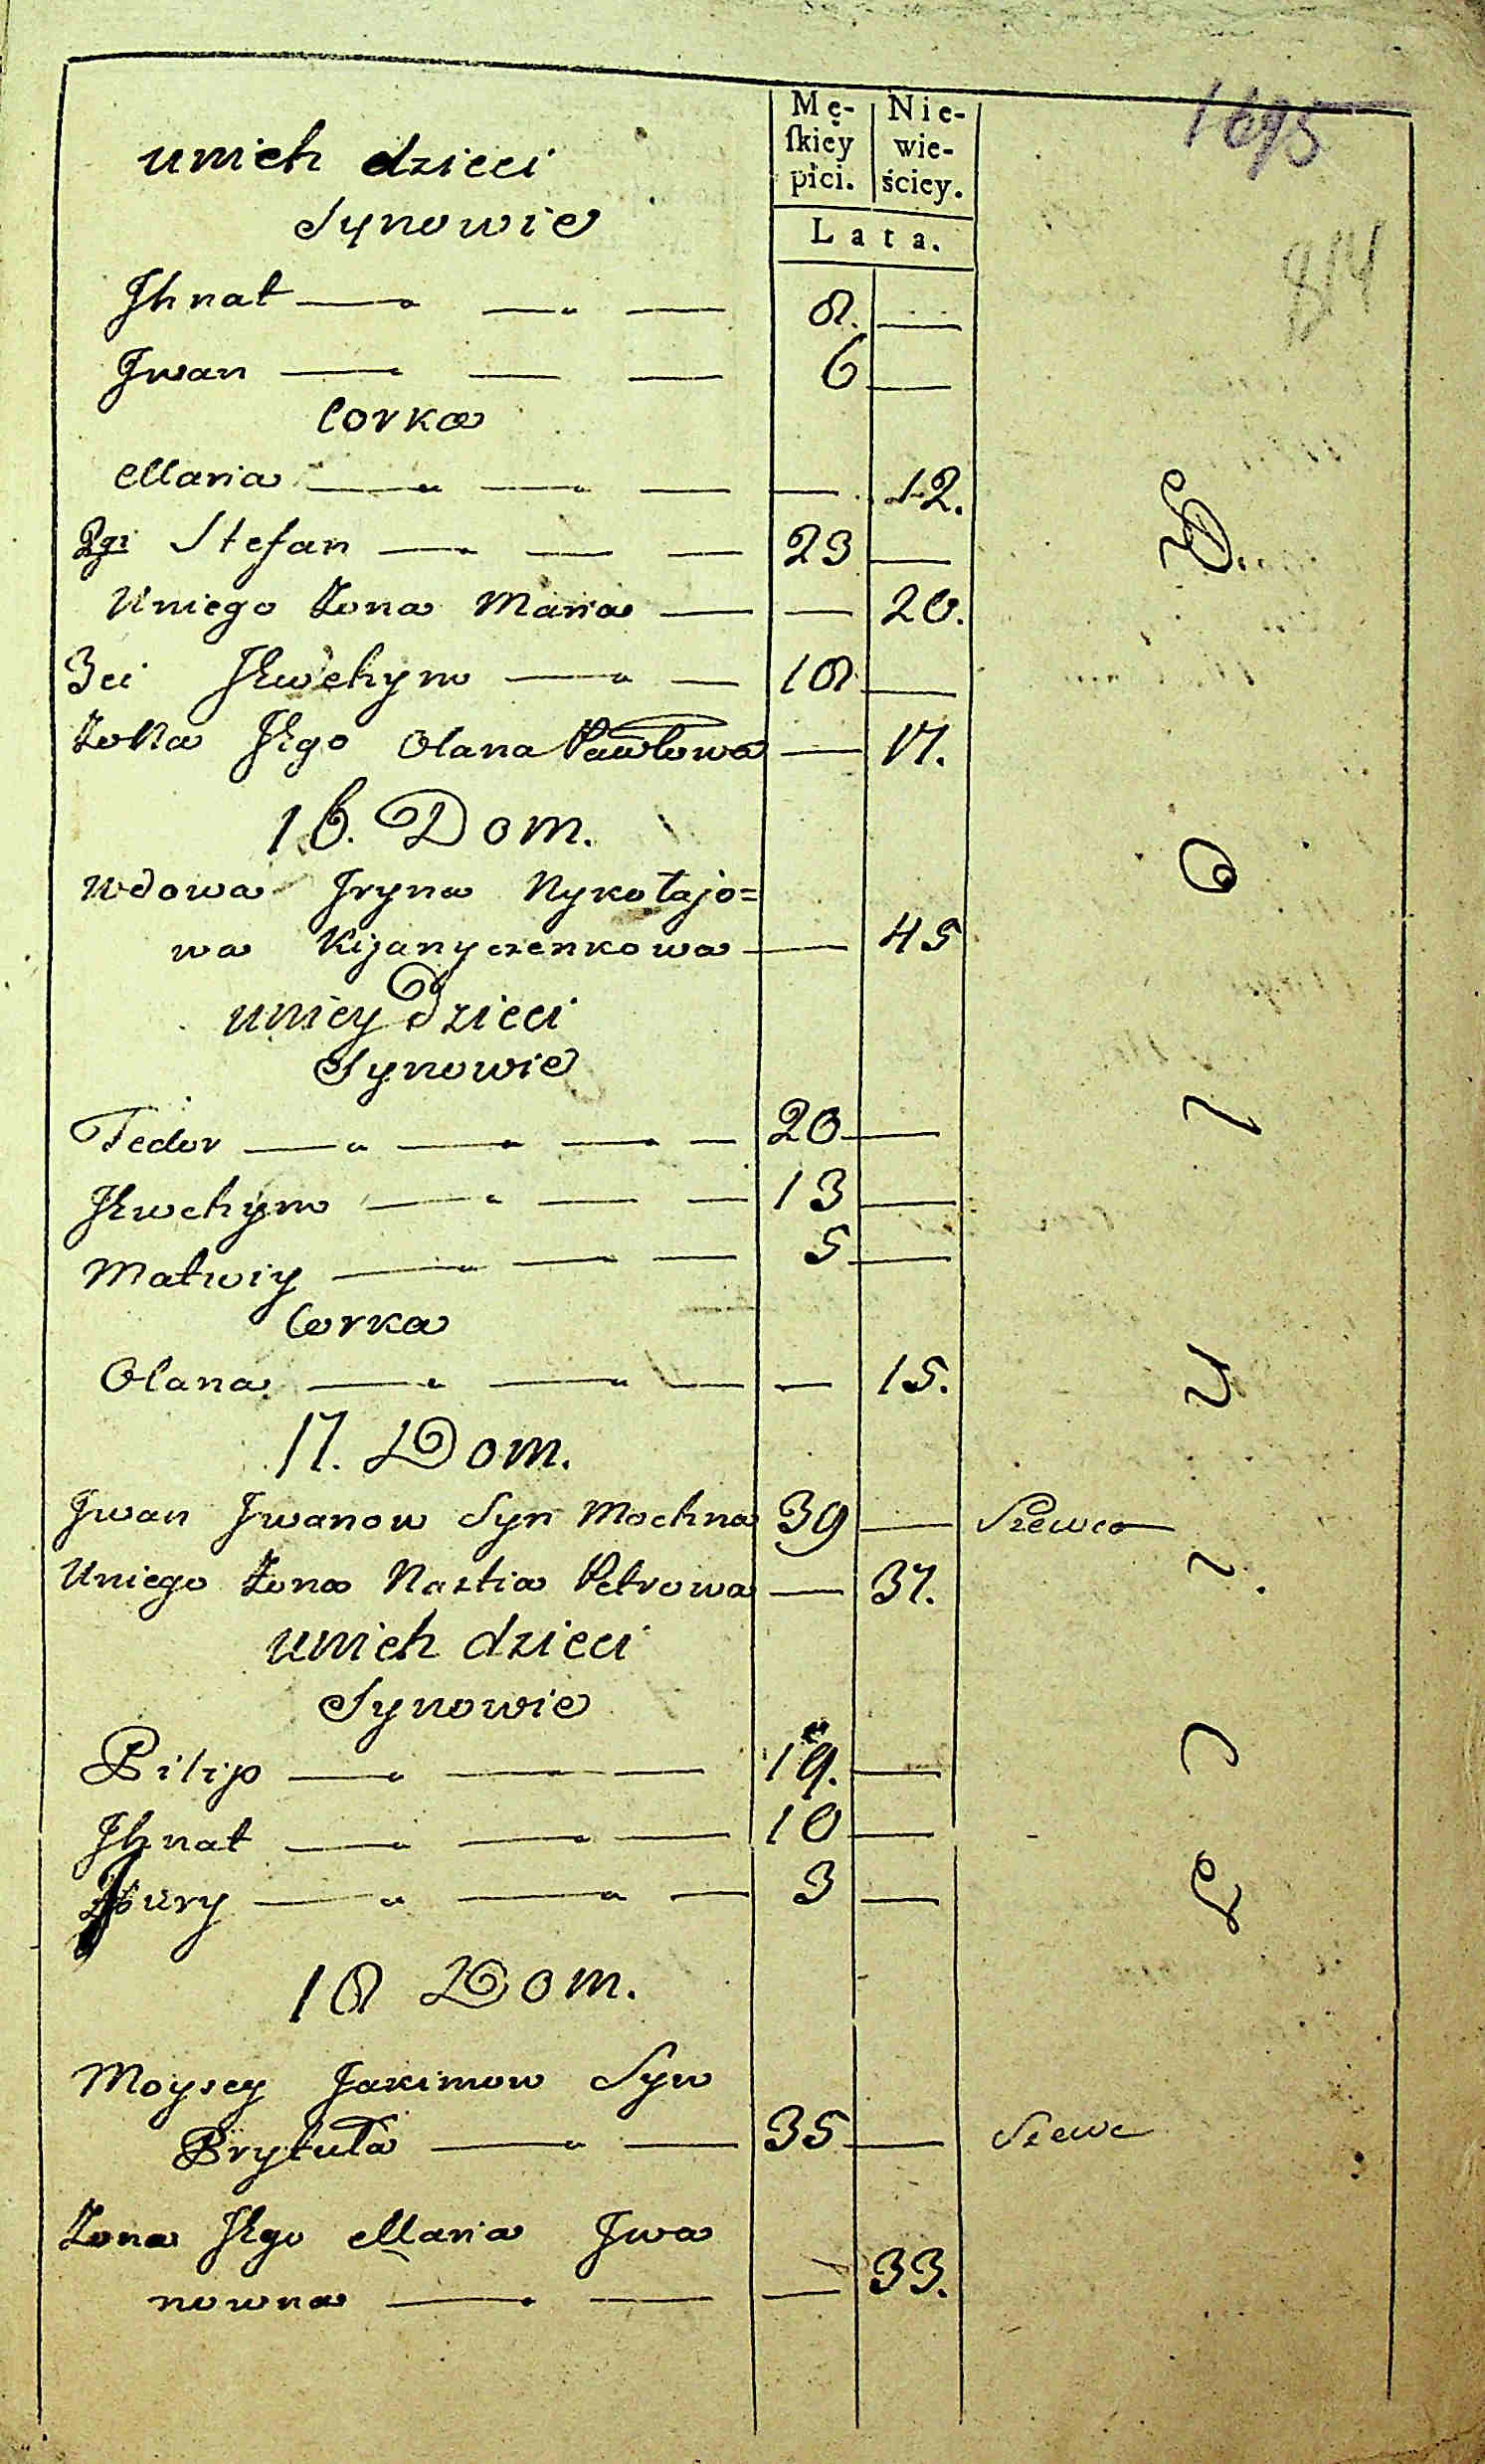 Mę- Nie-
ſkiey wie-
płci. ściey.
Lata.
1695
814
unich dzieci
Synowie
Jhnat 8.
Jwan 6
Corka
Maria 12.
2gi Stefan 23
Uniego Żona Maria 20.
3ci Jewchym 18
Żona Jego Olana Pawłowa 17.
16. Dom.
Wdowa Jryna Nykołajo=
wa Kijanyczenkowa 45
uniey Dzieci
Synowie
Fedor 20
Jewchym 13
Matwiy 5
Corka
Olana 15.
17. Dom.
Jwan Jwanow Syn Mochna 39 Szewc
Uniego Żona Nastia Petrowa 37.
unich dzieci
Synowie
Pilip 19.
Jhnat 10
Jury 3
18 Dom.
Moysey Jakimow Syn
Prytuła 35 Szewc
Żona Jego Maria Jwa
nowna 33.